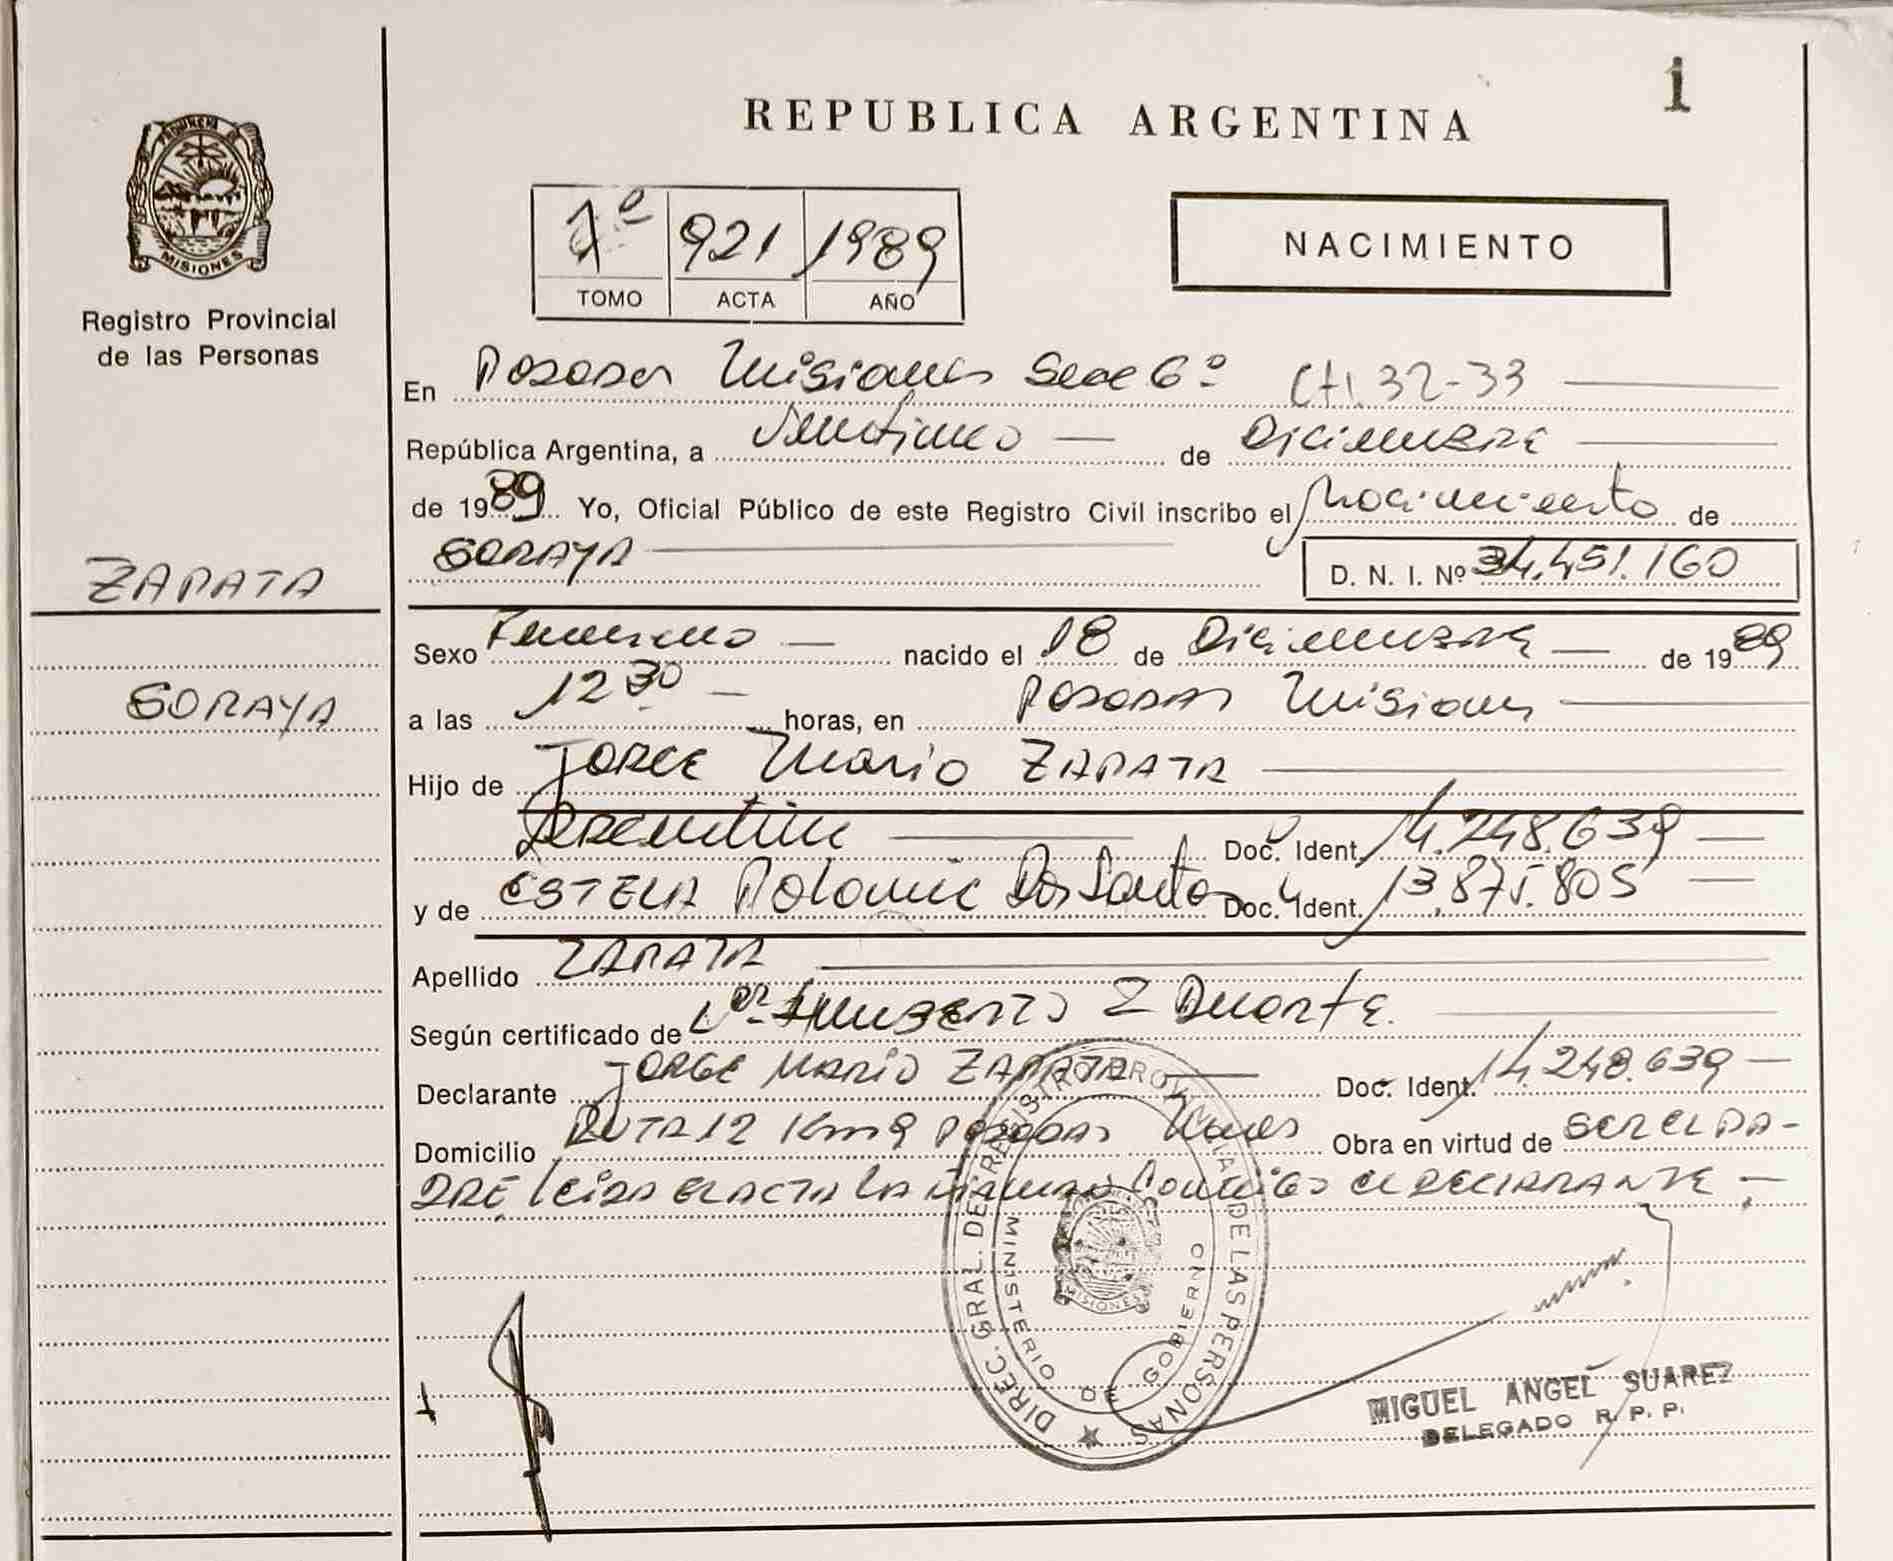 REPUBLICA ARGENTINA
1
PROVINCIA DE
MISIONES
Registro Provincial
de las Personas
921 1989
TOMO ACTA AÑO
NACIMIENTO
En Posadas Misiones Secc 6º Ct. 32-33
República Argentina, a Veintiuno de Diciembre
de 1989 Yo, Oficial Público de este Registro Civil inscribo el Nacimiento de
SORAYA D. N. I. Nº 34.451.160
ZAPATA
SORAYA
Sexo Femenino nacido el 18 de Diciembre de 1989
a las 12 30 horas, en Posadas Misiones
Hijo de JORGE Mario ZAPATA
Argentina Doc. Ident. 14.248.639
y de ESTELA Dos Santos Doc. Ident. 13.875.805
Apellido ZAPATA
Según certificado de Duarte.
Declarante JORGE MARIO ZAPATA Doc. Ident. 14.248.639
Domicilio RUTA 12 Km 9 POSADAS Obra en virtud de SER EL PA-
DRE LEIDA EL ACTA LA EL DECLARANTE
DIREC. GRAL. DEL REGISTRO PROVINCIAL DE LAS PERSONAS
MINISTERIO DE GOBIERNO
MISIONES
MIGUEL ANGEL SUAREZ
DELEGADO R. P. P.